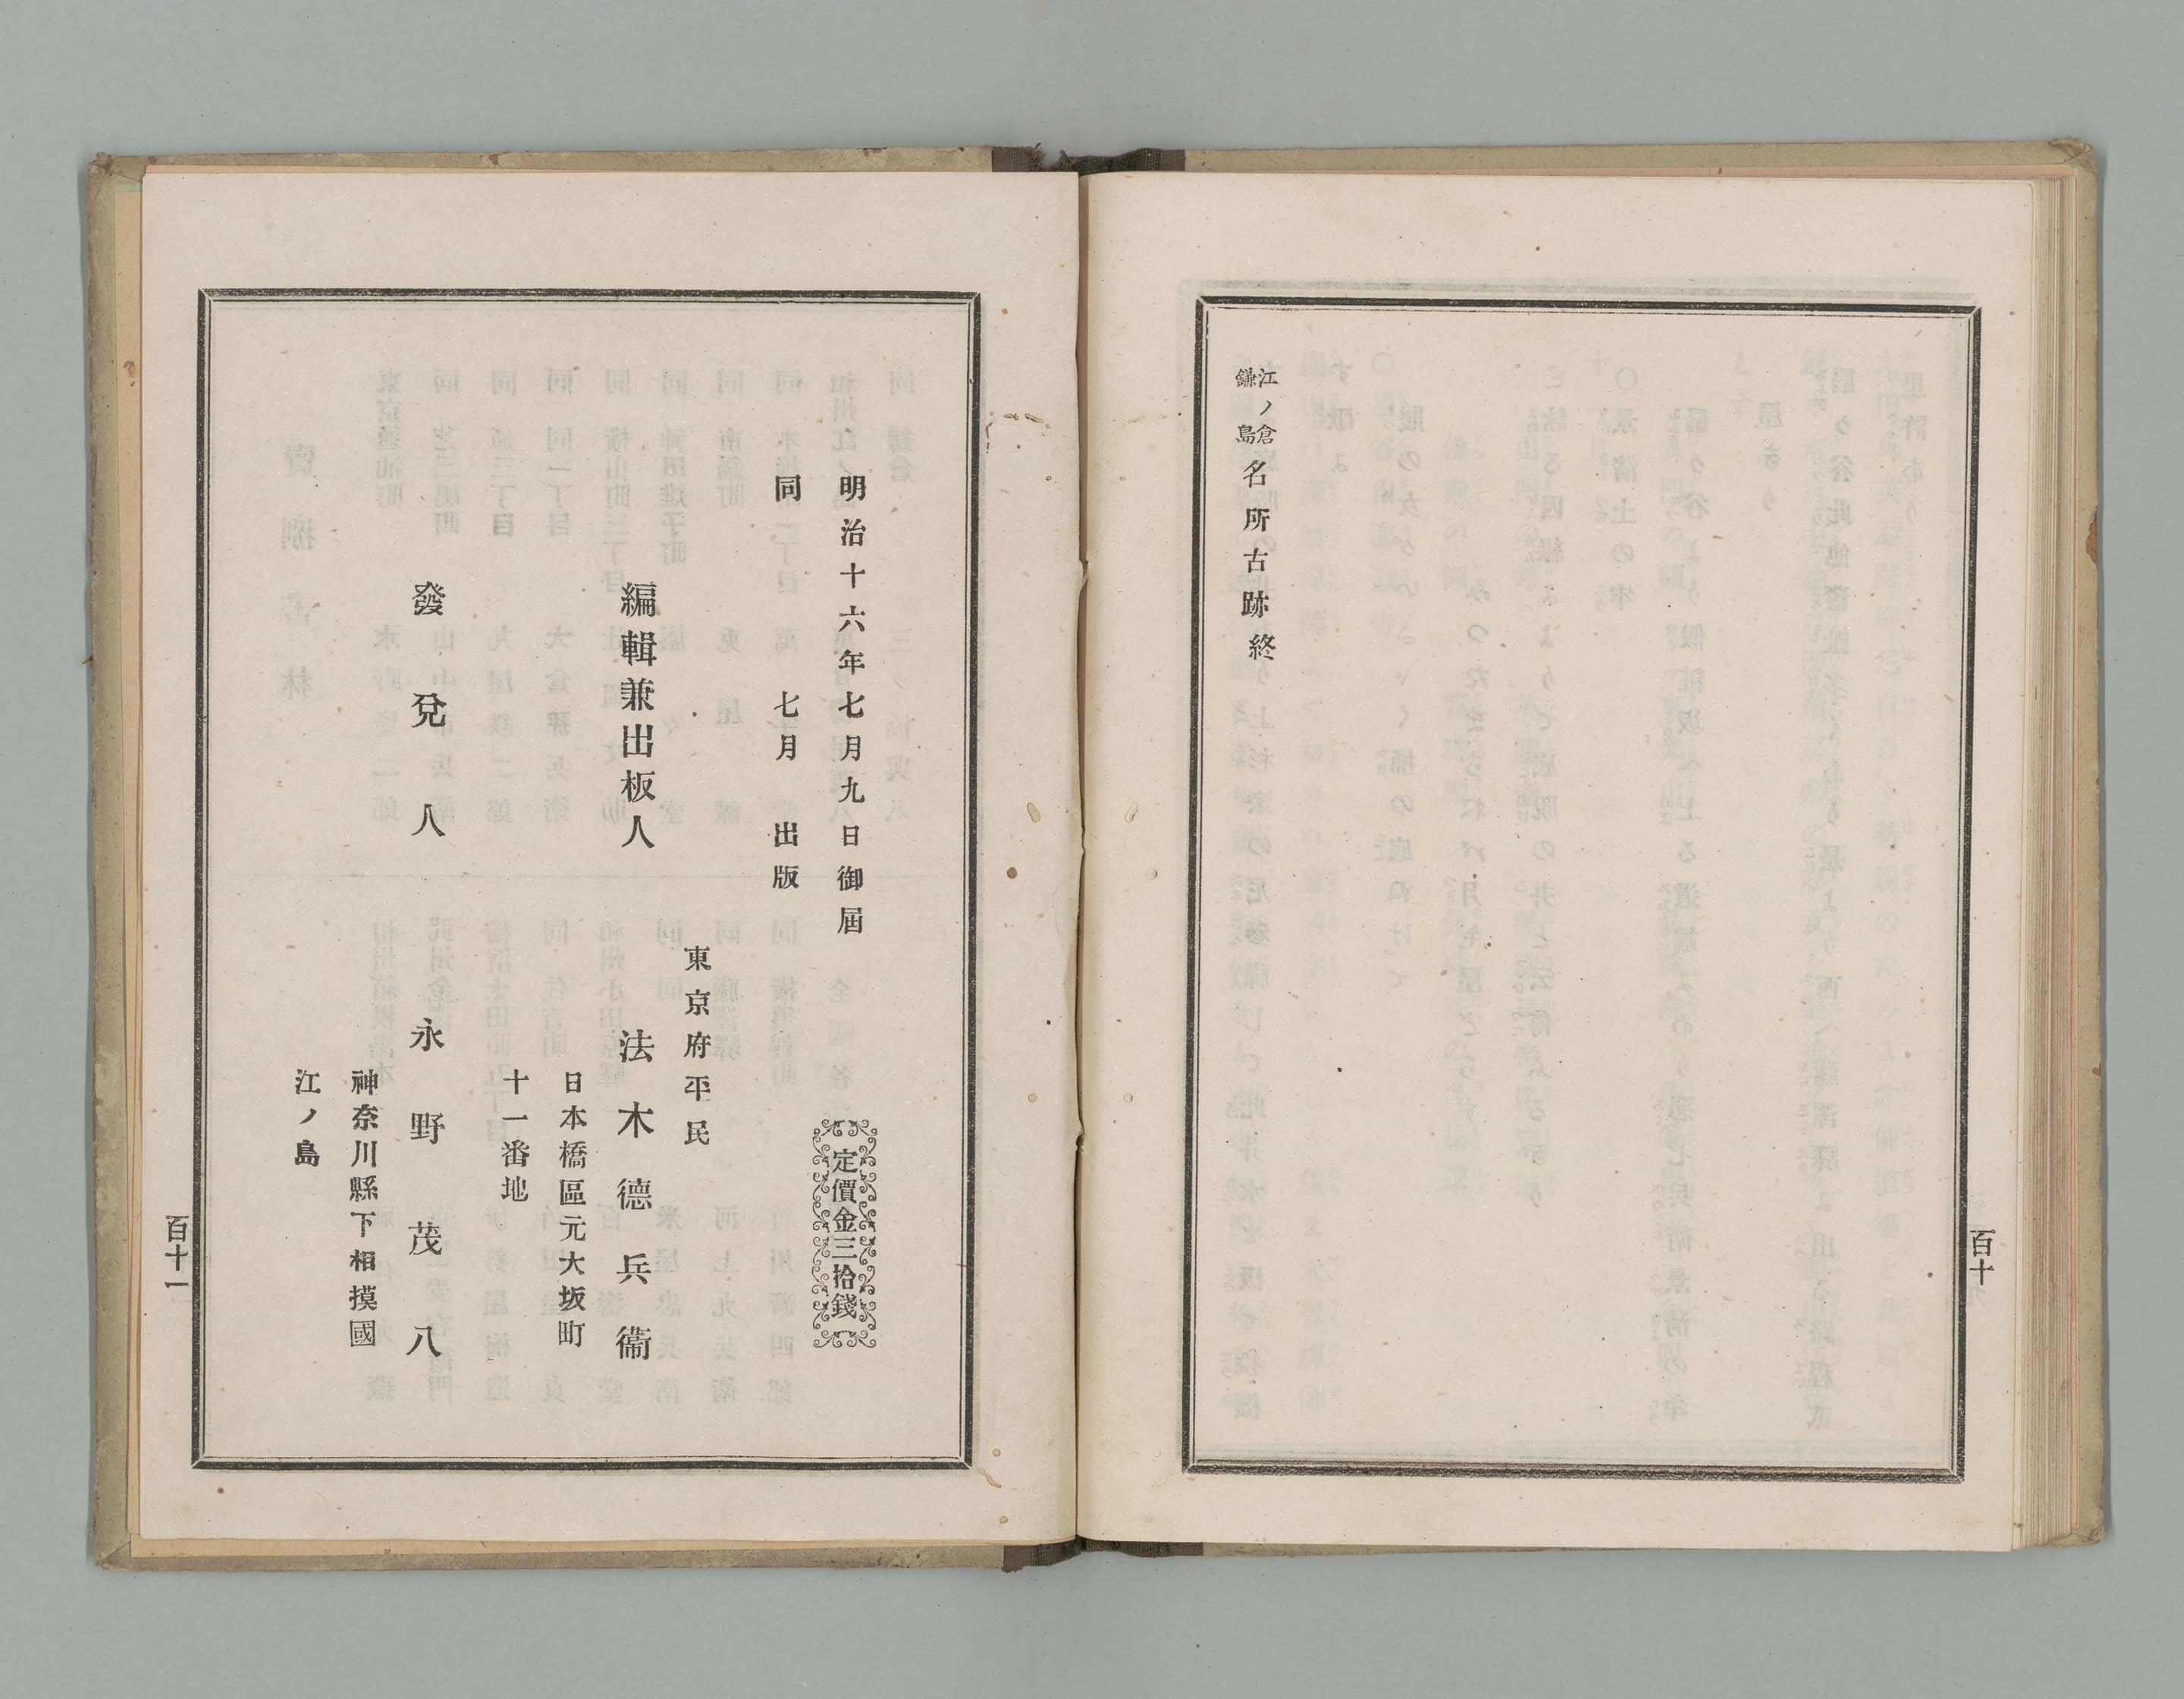 江ノ倉
鎌島
名所古跡終
百十
明治十六年七月九日御屆
同 七月 出版
定價金三拾錢
東京府平民
編輯兼出板人 法木德兵衞
日本橋區元大坂町
十一番地
發兌人 永野茂八
神奈川縣下相摸國
江ノ島
百十一